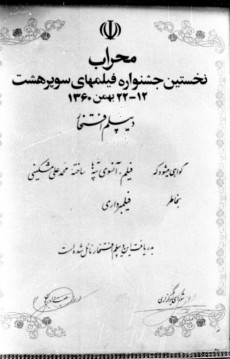 محراب
نخستین جشنواره فیلمهای سوپر هشت
۱۲-۲۲ بهمن ۱۳۶۰
دیپلم افتخار
گواهی میشود که فیلم: آنسوی تپه‌ها ساخته محمدعلی شکیبی
بخاطر فیلمبرداری
بدریافت این دیپلم افتخار نائل شده است